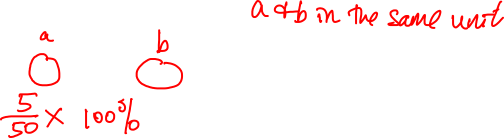 a & b in the same unit
a b
5/50 × 100%